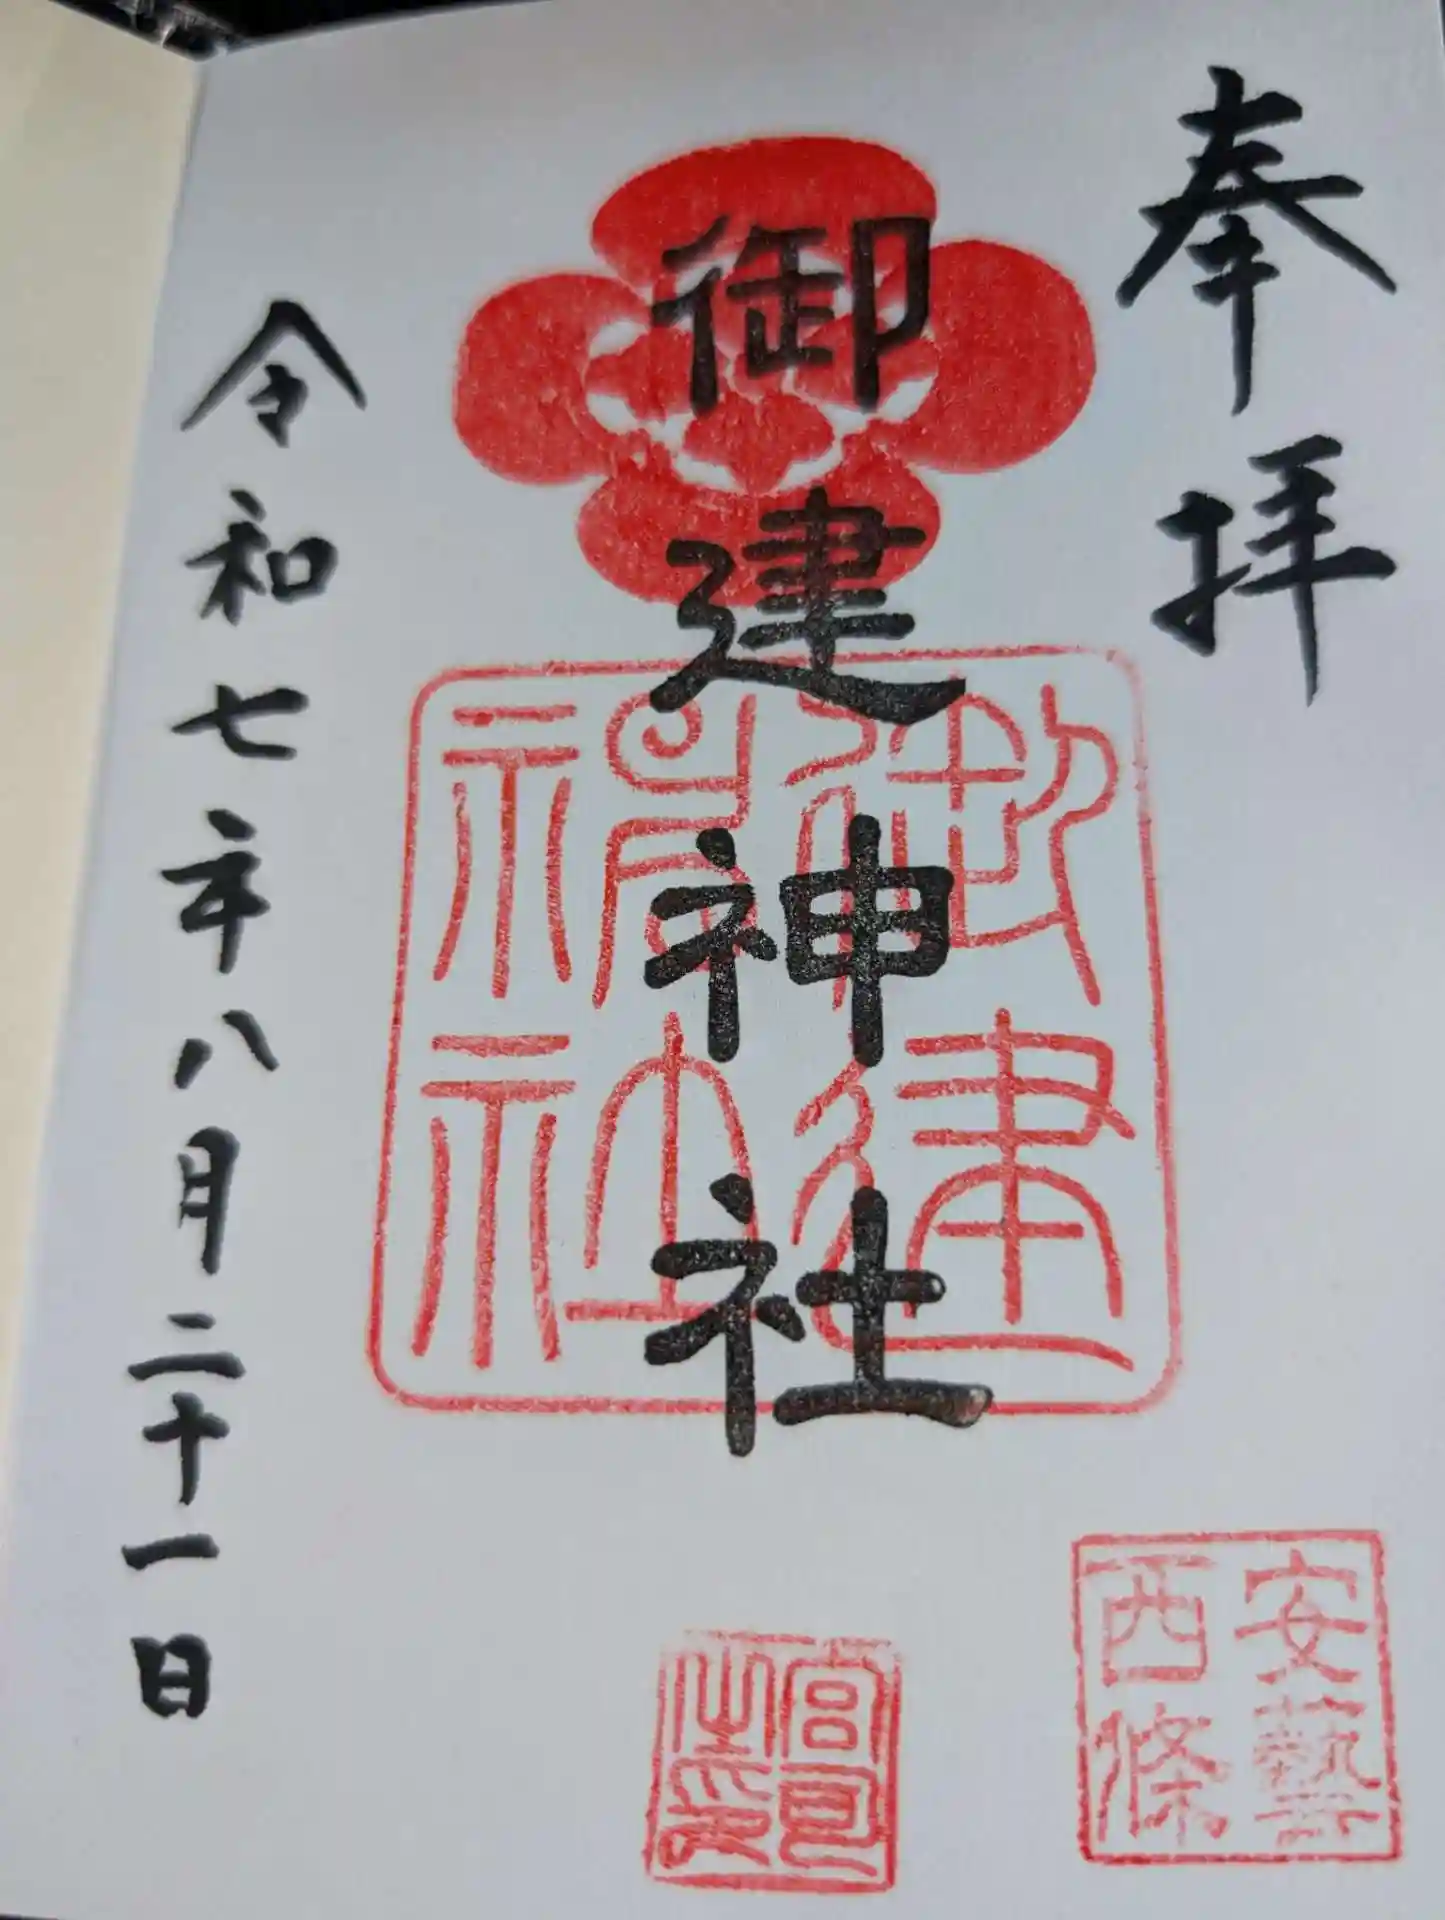 奉拝
御建神社
御建
神社
令和七年八月二十一日
安藝
西條
宮司
之印